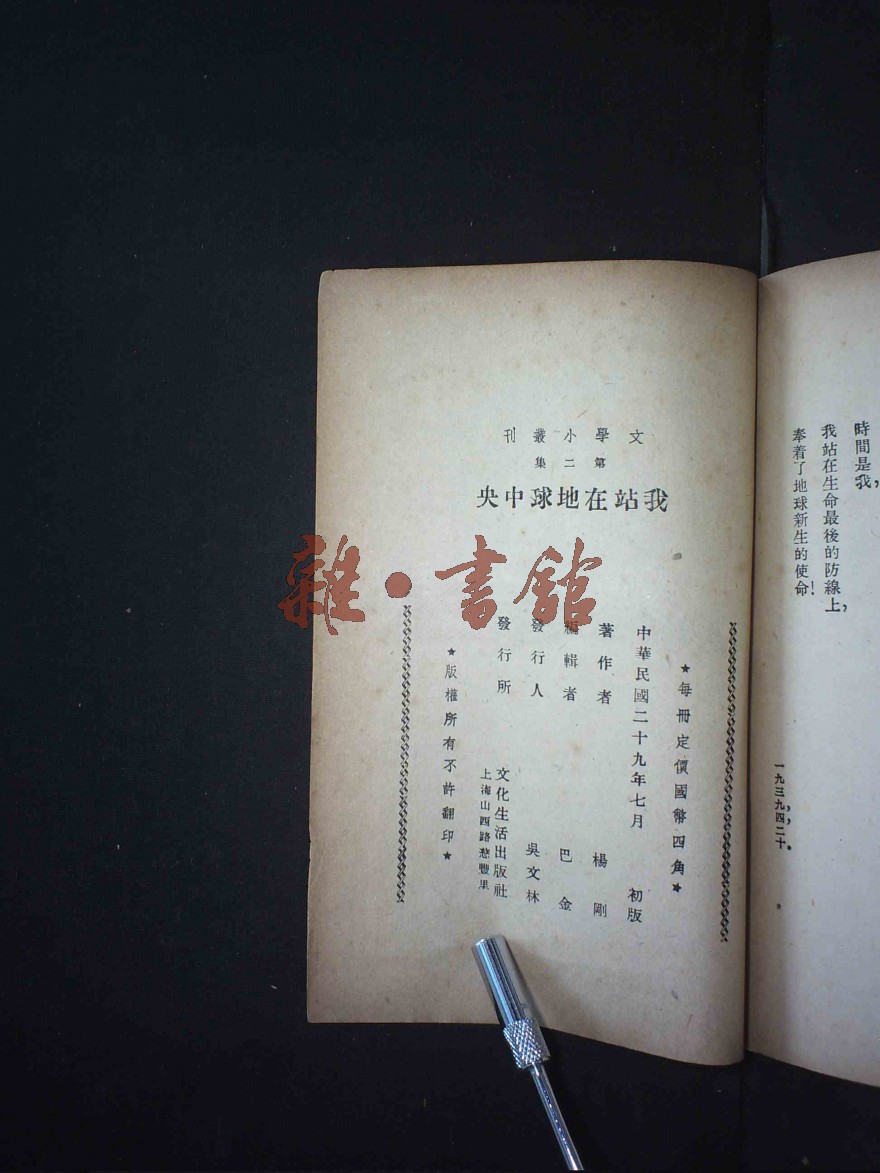 時間是我，
我站在生命最後的防線上，
奉着了地球新生的使命！
一九三九，四，二十。
文學小叢刊
第二集
我站在地球中央
★每冊定價國幣四角★
中華民國二十九年七月 初版
著作者 楊剛
編輯者 巴金
發行人 吳文林
發行所 文化生活出版社
上海山西路慈豐里
★版權所有不許翻印★
雜·書館